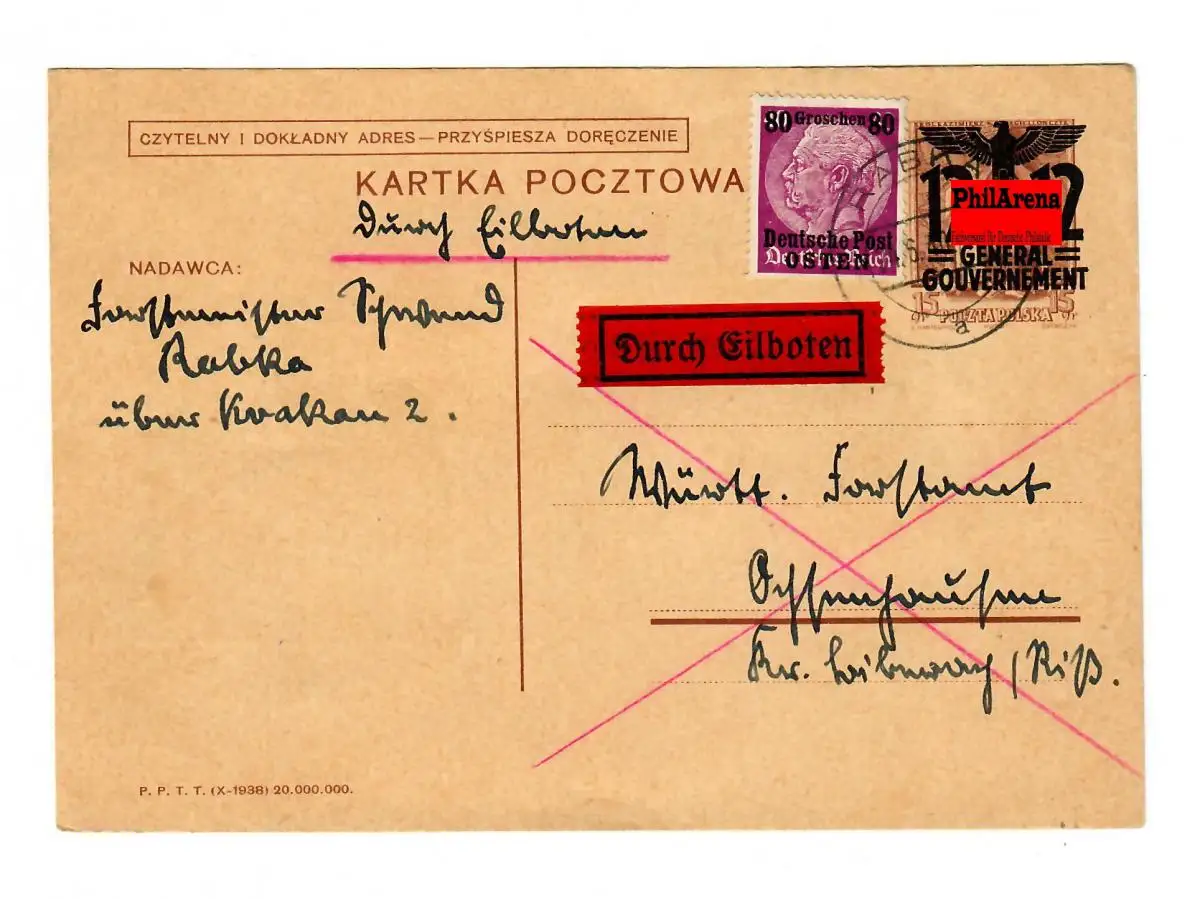 CZYTELNY I DOKŁADNY ADRES — PRZYŚPIESZA DORĘCZENIE
KARTKA POCZTOWA
Durch Eilboten
NADAWCA:
Forstmeister Schwend
Rabka
über Krakau 2.
80 Groschen 80
Deutsche Post
OSTEN
Deutsches Reich
RABKA
a
12 12
PhilArena
GENERAL
GOUVERNEMENT
15 gr. POCZTA POLSKA 15 gr.
Durch Eilboten
Württ. Forstamt
Ochsenhausen
Kr. Biberach/Riß.
P. P. T. T. (X-1938) 20.000.000.